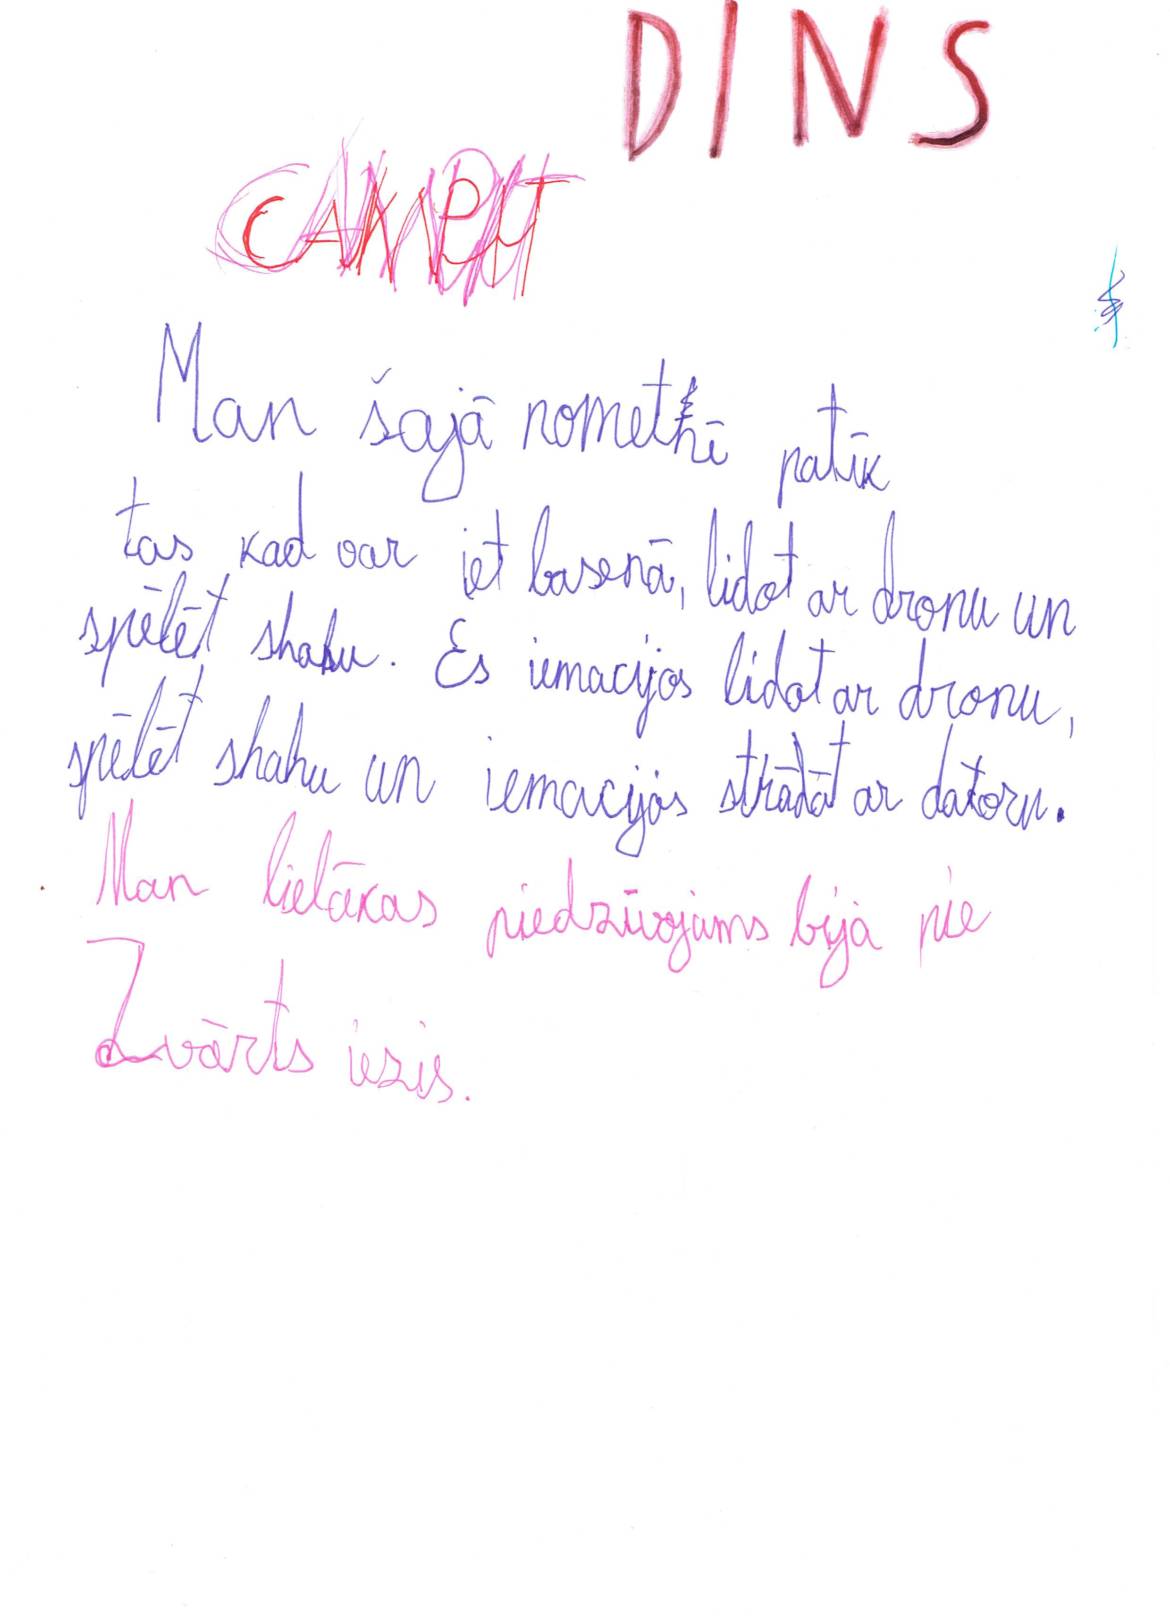 DINS
Man šajā nometnē patīk
tas kad var iet basenā, lidot ar dronu un
spēlēt shahu. Es iemacijos lidot ar dronu,
spēlēt shahu un iemacijos strādāt ar datoru.
Man lielākas piedzīvojums bija pie
Zvārts iezis.